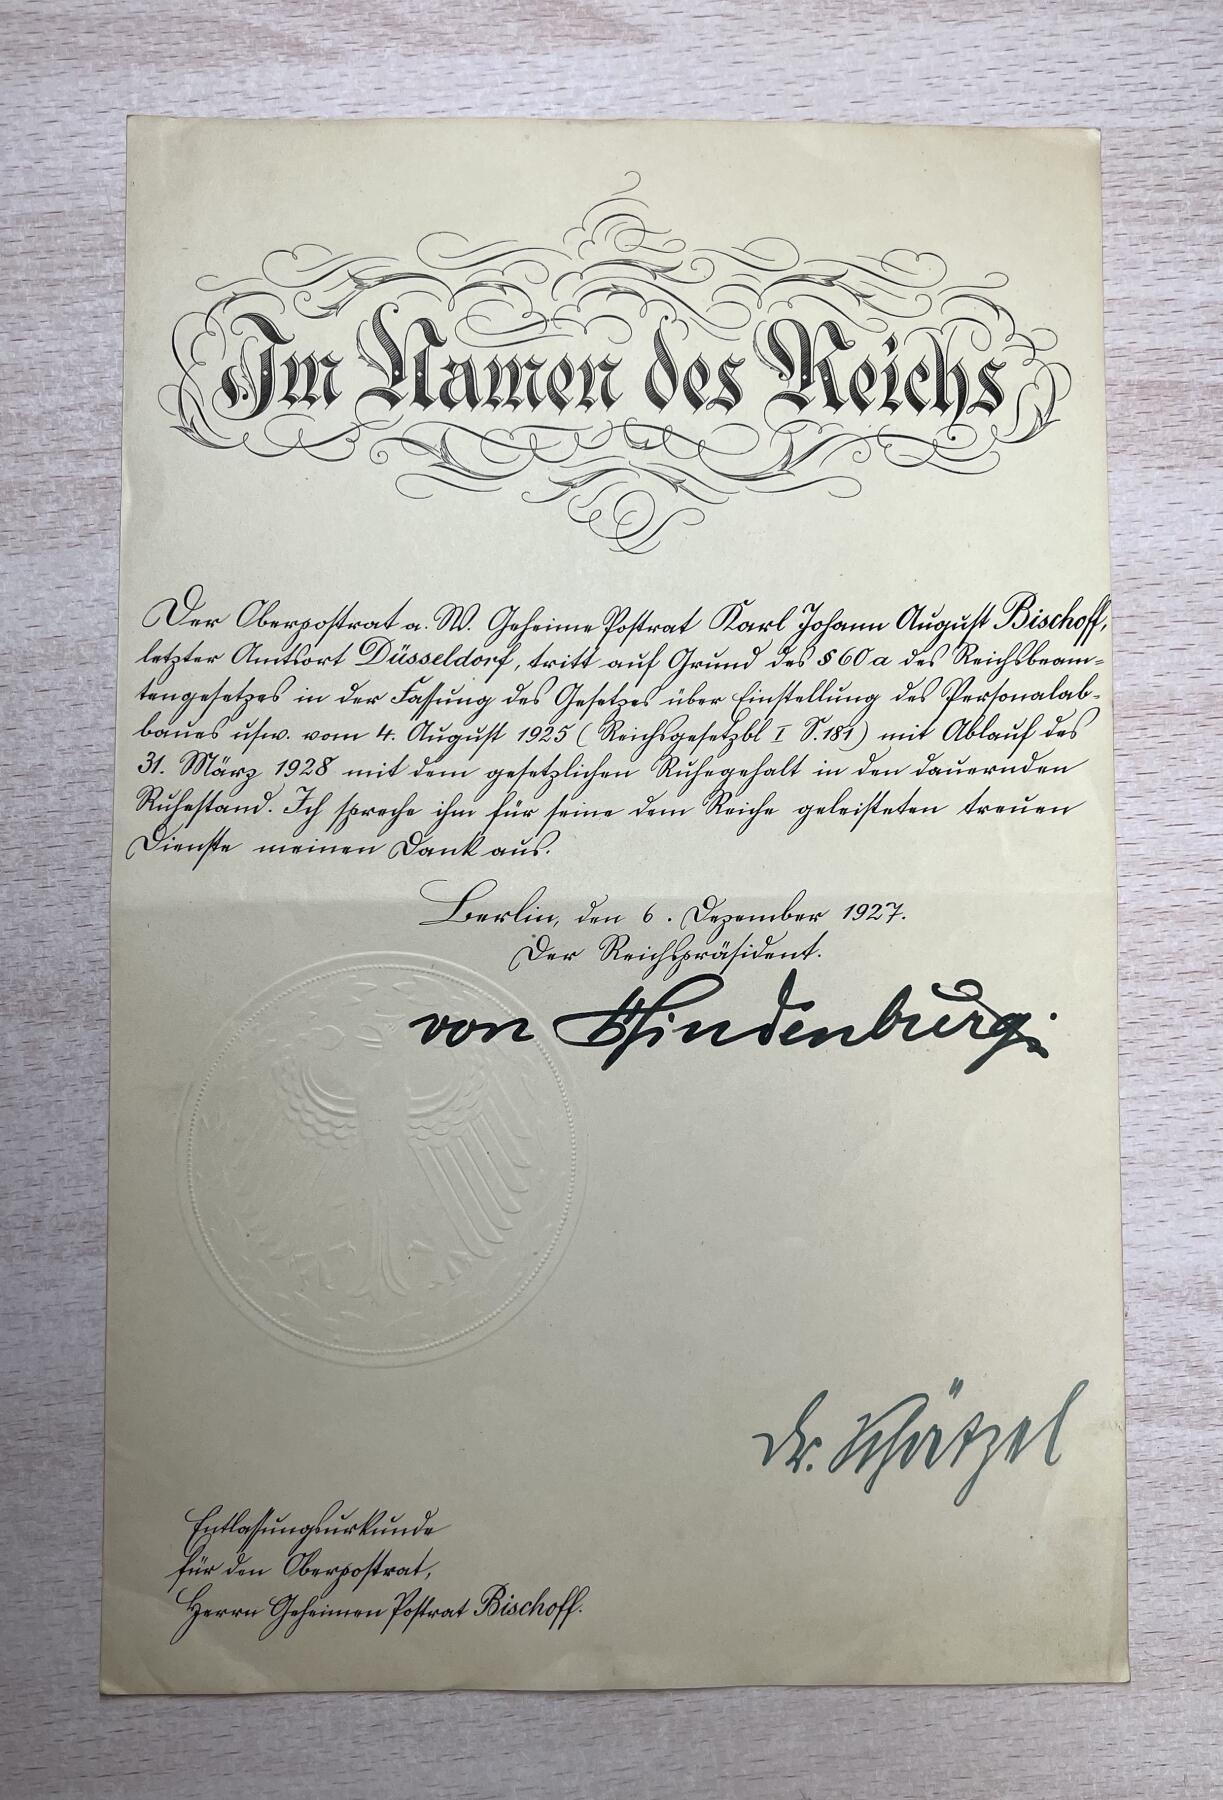 Im Namen des Reichs
Der Oberpostrat a. W. Geheime Postrat Karl Johann August Bischoff,
letzter Amtsort Düsseldorf, tritt auf Grund des § 60 a des Reichsbeam-
tengesetzes in der Fassung des Gesetzes über Einstellung des Personalab-
baues usw. vom 4. August 1925 (Reichsgesetzbl I S. 181) mit Ablauf des
31. März 1928 mit dem gesetzlichen Ruhegehalt in den dauernden
Ruhestand. Ich spreche ihm für seine dem Reiche geleisteten treuen
Dienste meinen Dank aus.
Berlin, den 6. Dezember 1927.
Der Reichspräsident.
von Hindenburg.
Dr. Schätzel
Entlassungsurkunde
für den Oberpostrat,
Herrn Geheimen Postrat Bischoff.